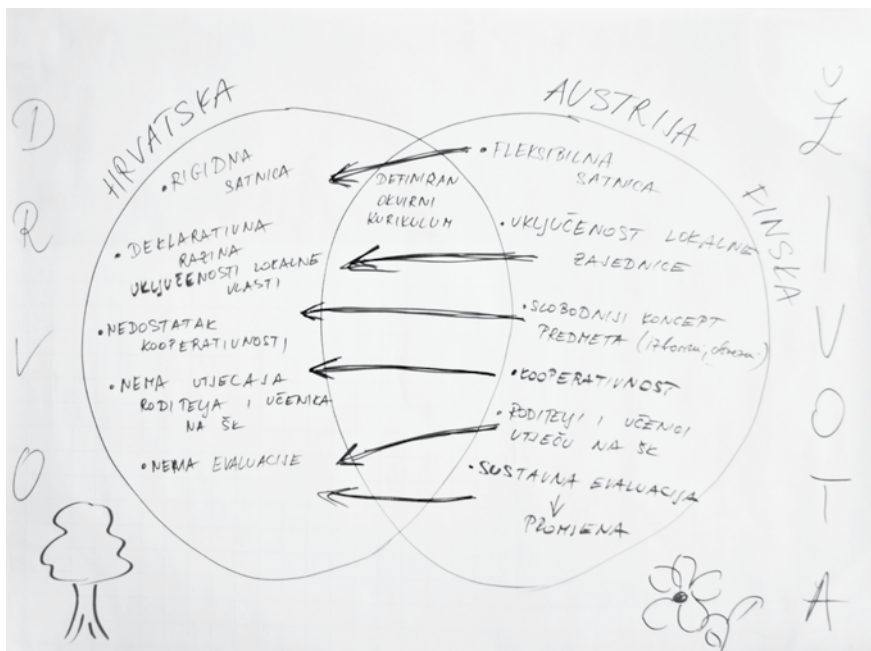 DRVO
HRVATSKA
• RIGIDNA
SATNICA
• DEKLARATIVNA
RAZINA
UKLJUČENOSTI LOKALNE
VLASTI
• NEDOSTATAK
KOOPERATIVNOSTI
• NEMA UTJECAJA
RODITELJA I UČENIKA
NA ŠK
• NEMA EVALUACIJE
DEFINIRAN
OKVIRNI
KURIKULUM
AUSTRIJA
FINSKA
• FLEKSIBILNA
SATNICA
• UKLJUČENOST LOKALNE
ZAJEDNICE
• SLOBODNIJI KONCEPT
PREDMETA (izborni,
• KOOPERATIVNOST
• RODITELJI I UČENICI
UTJEČU NA ŠK
• SUSTAVNA EVALUACIJA
PROMJENA
ŽIVOTA